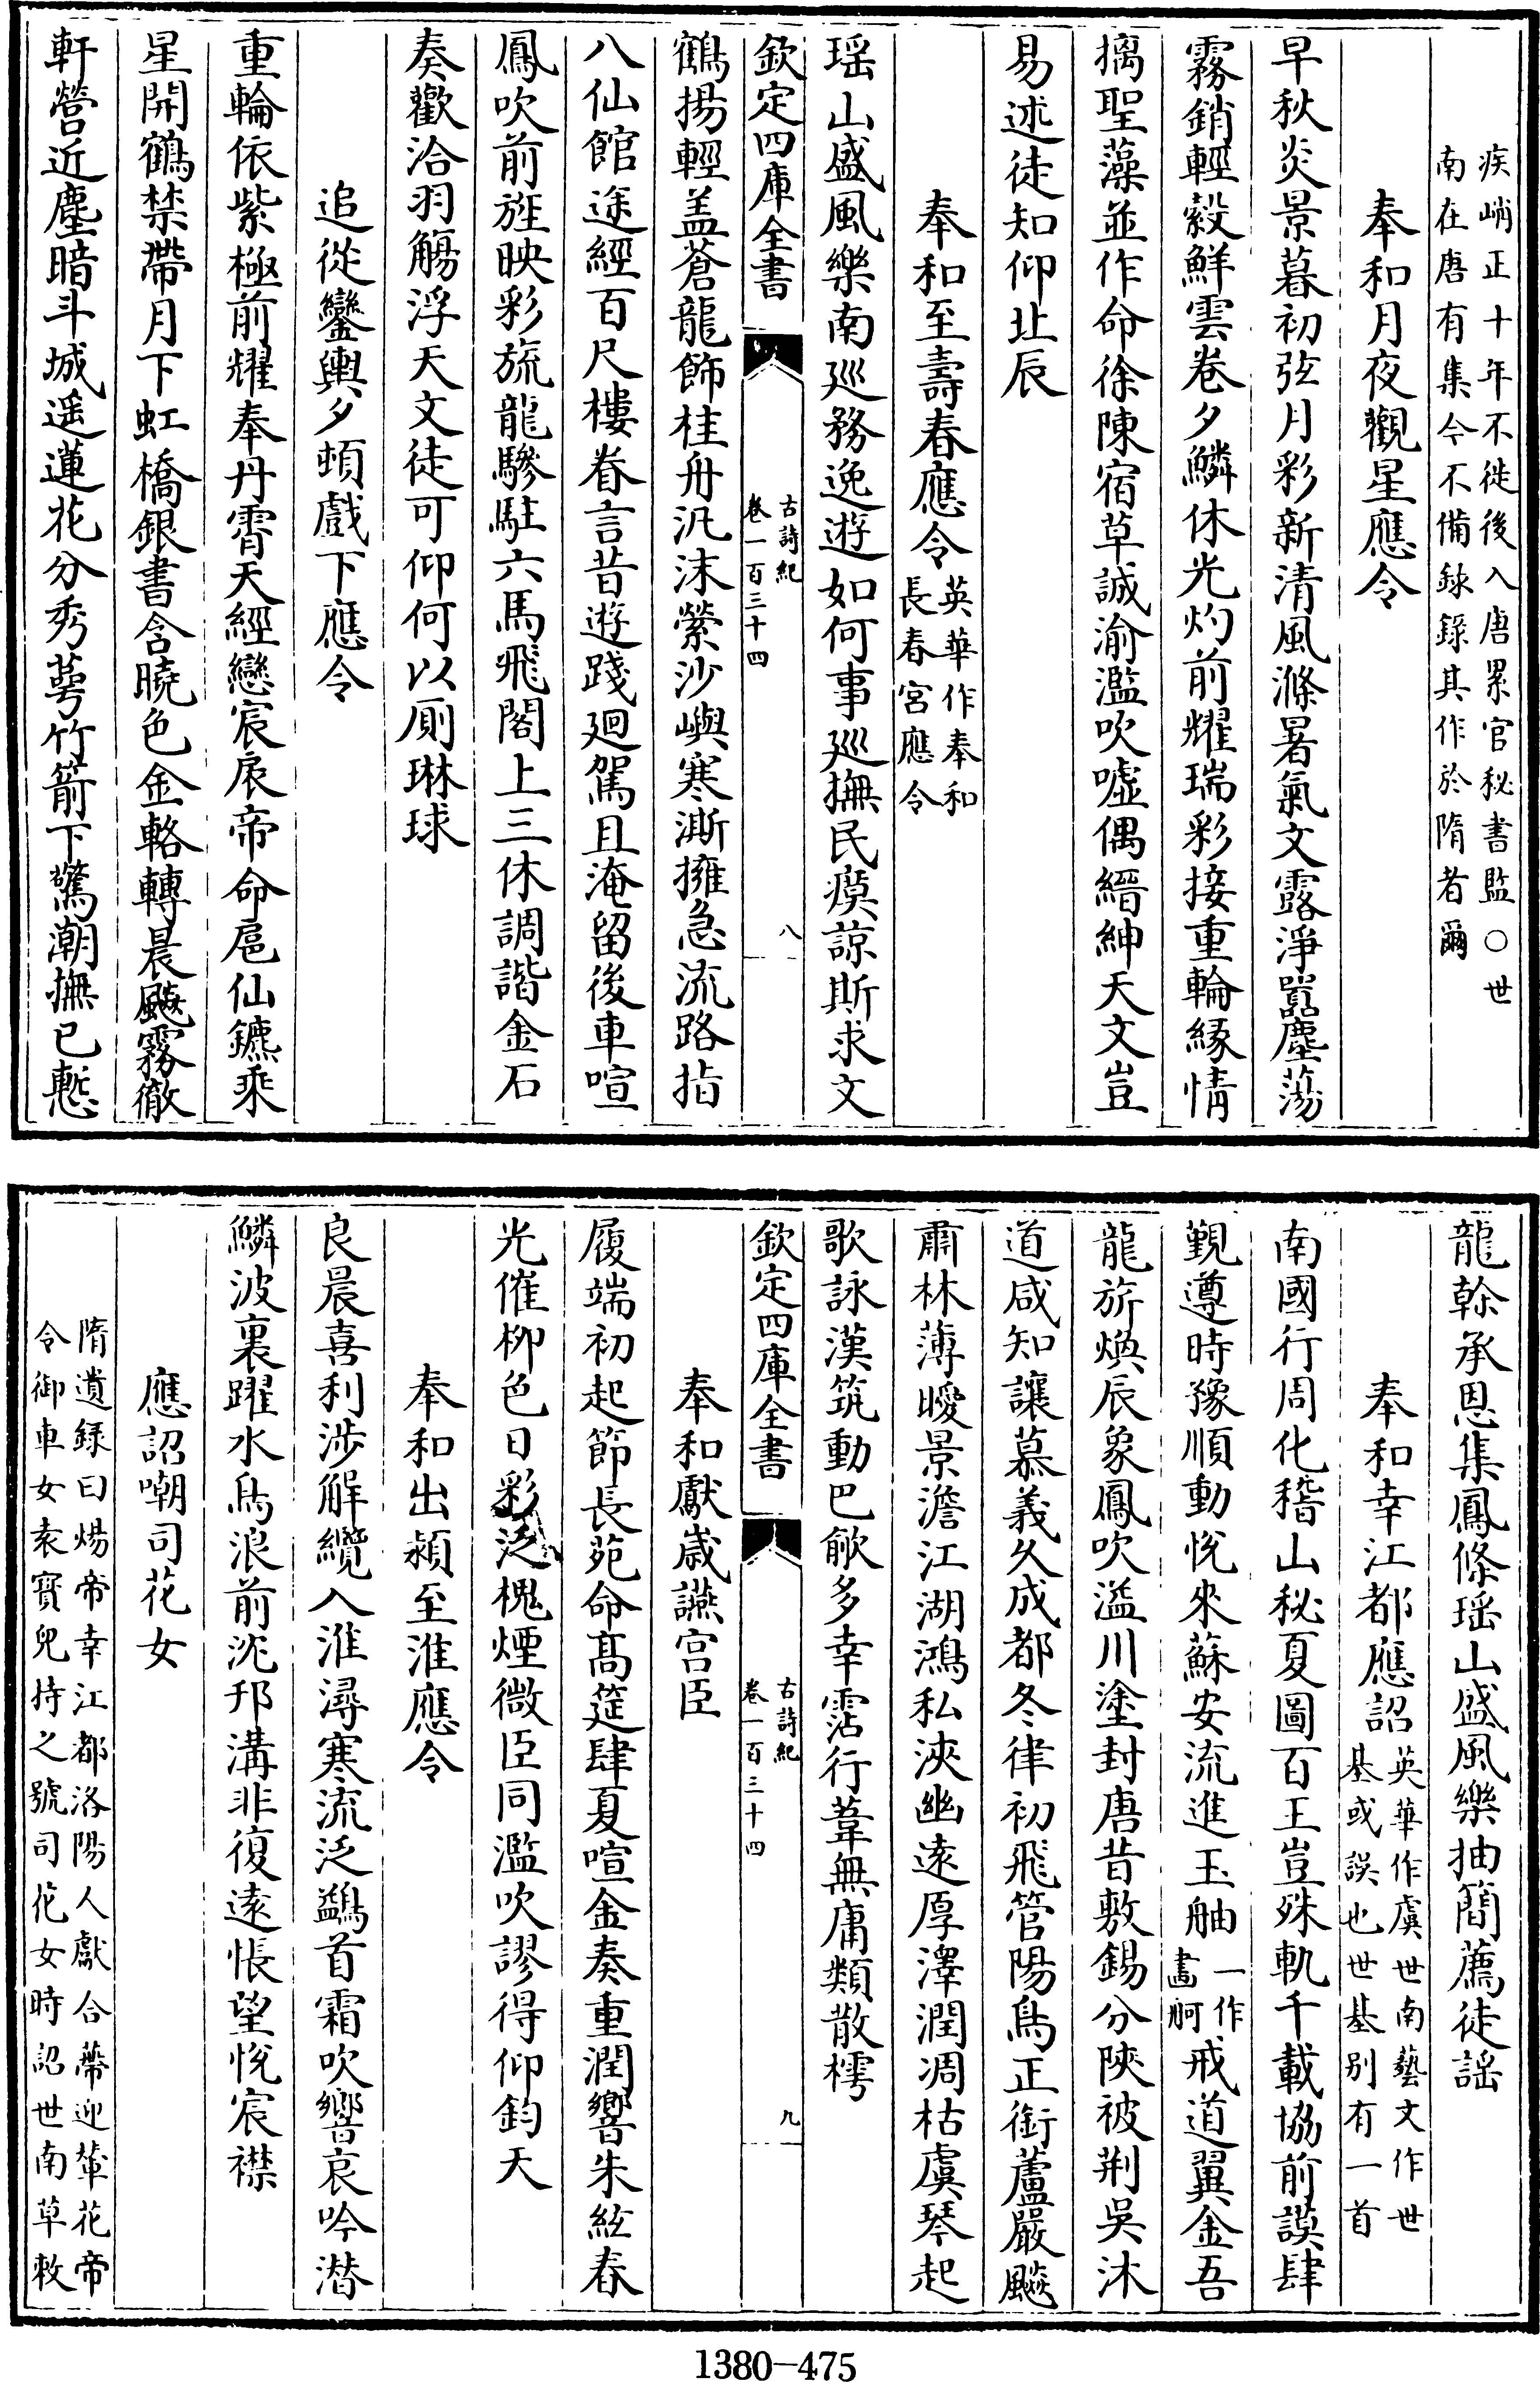 疾峭正十年不徙後入唐累官秘書監○世
南在唐有集今不備録錄其作於隋者爾
奉和月夜觀星應令
早秋炎景暮初弦月彩新清風滌暑氣文露淨囂塵蕩
霧銷輕縠鮮雲卷夕鱗休光灼前耀瑞彩接重輪緣情
摛聖藻並作命徐陳宿草誠渝濫吹噓偶縉紳天文豈
易述徒知仰北辰
奉和至壽春應令英華作奉和
長春宫應令
瑶山盛風樂南巡務逸遊如何事巡撫民瘼諒斯求文
欽定四庫全書
古詩紀
卷一百三十四
八
鶴揚輕盖蒼龍飾桂舟汎沫縈沙嶼寒澌擁急流路指
八仙館途經百尺樓眷言昔遊踐廻駕且淹留後車喧
鳳吹前旌映彩旒龍驂駐六馬飛閣上三休調諧金石
奏歡洽羽觴浮天文徒可仰何以厠琳球
追從鑾輿夕頓戲下應令
重輪依紫極前耀奉丹霄天經戀宸扆帝命扈仙鑣乘
星開鶴禁帶月下虹橋銀書含曉色金輅轉晨飈霧徹
軒營近塵暗斗城遥蓮花分秀萼竹箭下驚潮撫已慙
龍榦承恩集鳳條瑶山盛風樂抽簡薦徒謡
奉和幸江都應詔英華作虞世南藝文作世
基或誤也世基别有一首
南國行周化稽山秘夏圖百王豈殊軌千載協前謨肆
覲遵時豫順動悅來蘇安流進玉舳一作
畵舸戒道翼金吾
龍旂煥辰象鳳吹溢川塗封唐昔敷錫分陜被荆吳沐
道咸知讓慕義久成都冬律初飛管陽鳥正銜蘆嚴飈
肅林薄曖景澹江湖鴻私浹幽遠厚澤潤凋枯虞琴起
歌詠漢筑動巴歈多幸霑行葦無庸類散樗
欽定四庫全書
古詩紀
卷一百三十四
九
奉和獻歲讌宫臣
履端初起節長苑命髙筵肆夏喧金奏重潤響朱絃春
光催柳色日彩泛槐煙微臣同濫吹謬得仰鈞天
奉和出潁至淮應令
良晨喜利涉解纜入淮潯寒流泛鷁首霜吹響哀吟潜
鱗波裏躍水鳥浪前沈邗溝非復遠悵望悅宸襟
應詔嘲司花女
隋遺録曰煬帝幸江都洛陽人獻合蔕迎輦花帝
令御車女袁寶兒持之號司花女時詔世南草敕
1380—475